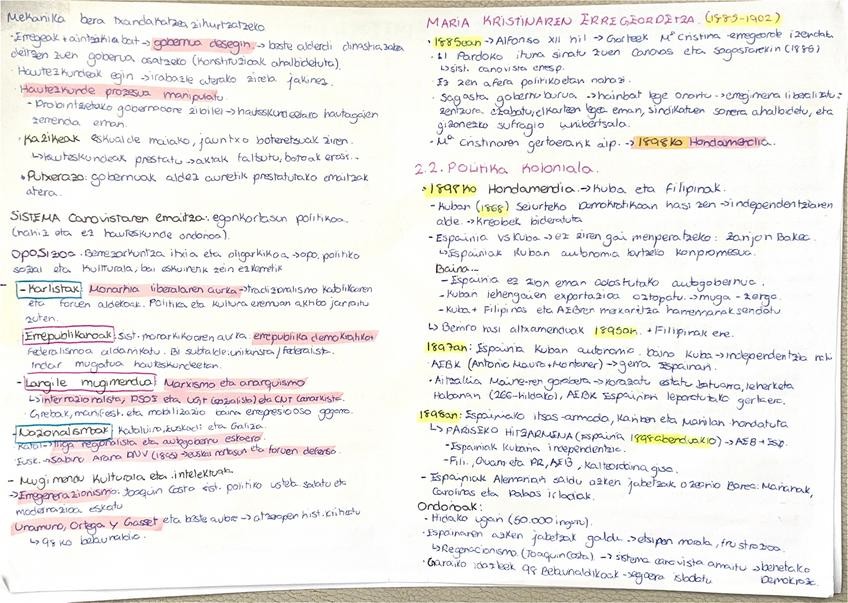 Mekanika bera txandakatzea zihurtzatzeko
· Erregeak + aintzakia bat → gobernua desegin. → beste alderdi dinastikoa
deitzen zuen gobernua osatzeko (konstituzioak ahalbidetuta).
· Hauteskundeak egin → irabazle aterako zirela jakinez.
· Hauteskunde prozesua manipulatu.
- Probintzetako gobernadore zibilei → hauteskundeetarako hautagaien
zerrenda eman.
· Kazikeak eskualde maiako, jauntxo boteretsuak ziren.
↳ hauteskundeak prestatu → aktak faltsutu, botoak erosi...
· Putxerazo: gobernuak aldez aurretik prestatutako emaitzak
atera.
SISTEMA Canovistaren emaitza: egonkortasun politikoa.
(nahiz eta ez hauteskunde ondorioa).
OPOSIZIOA: Berrezarkuntza itxia eta oligarkikoa → opo. politiko
sozial eta kulturala, bai eskuinetik zein ezkerretik
- Karlistak: Monarkia liberalaren aurka → tradizionalismo katolikoaren
eta foruen aldekoak. Politika eta kultura eremuan aktibo jarraitu
zuten.
Errepublikanoak: Sist. monarkikoaren aurka: errepublika demokratikoa
Federalismoa aldarrikatu. Bi subtalde: unitarista / federalista.
Indar mugatua hauteskundeetan.
- Langile mugimendua: Marxismo eta anarquismo
↳ internazionalista, PSOE eta UGT (sozialista) eta CNT (anarkista).
· Grebak, manifest. eta mobilizazio baina errepresioa gogorra.
- Nazionalismoak: Katalunia, Euskadi eta Galiza.
Katal → liga regionalista eta autogobernu eskaera.
Eusk. → Sabino Arana PNV (1895) → euskal nortasun eta foruen defentsa.
- Mugimendu kulturala eta intelektuala.
→ Erregenerazionismo: Joaquin Costa sist. politiko ustela salatu eta
modernizazioa eskatu
Unamuno, Ortega y Gasset eta beste
↳ 98 ko belaunaldia.
MARIA KRISTINAREN ERREGEORDETZA. (1885-1902)
· 1885ean → Alfonso XII hil → Gorteek Mª Cristina erregeorde izendatu
· El Pardoko ituna sinatu zuen Canovas eta Sagastarekin (1885)
↳ sist. canovista erresp.
· Ez zen afera politikoetan nahasi.
· Sagasta gobernuburua → hainbat lege onartu → erregimena liberalizatu:
zentzura ezabatu, elkarteen legea eman, sindikatuen sorrera ahalbidetu, eta
gizonezko sufragio unibertsala.
· Mª Cristinaren gertaerarik aip. → 1898ko Hondamendia.
2.2. POLITIKA KOLONIALA.
· 1898ko Hondamendia → Kuba eta Filipinak.
- Kuban (1868) Seiurteko Demokratikoan hasi zen → independentziaren
alde. → Kreoleek bideratuta
- Espainia VS Kuba → ez ziren gai menperatzeko: Zanjon Bakea.
↳ Espainiak Kuban autonomia sortzeko konpromesua.
Baina...
- Espainia ez zion eman adostutako autogobernua.
- Kuban lehengaien exportazioa oztopatu → muga-zerga.
- Kuba + Filipinas eta AEBren merkatal harremanak sendotu
↳ Berriro hasi altxamenduak 1895an. + Filipinak ere.
1897an: Espainia Kuban autonomia. baina Kuba → independentzia nahi
- AEBK (Antonio Maura + Montaner) → gerra Espainiari.
- Aitzakia Maine-ren gorabehera → Korazatu estatu batuarra, leherketa
Habanan (266 hildako), AEBK Espainiari leporatutako gertaera.
1898an: Espainiako itsas-armada, Kariben eta Manilan hondatuta
↳ PARISEKO HITZARMENA (Espainia 1898 abenduak 10) → AEB + Esp.
- Espainiak Kubaria independentzia.
- Fili., Guam eta PR, AEB, kalteordaina gisa.
- Espainiak Alemaniari saldu azken jabetzak ozeano Barea: Marianak,
Carolinas eta Palaos irlodiak.
Ondorioak:
- Hildako ugari (50.000 inguru).
- Espainiaren azken jabetzak galdu → etsipen morala, frustrazioa.
↳ Regenazionismo (Joaquin Costa). → sistema canovista amaitu → benetako
Demokrazia.
· Garaiko idazleek 98 Belaunaldikoak → egoera islatu